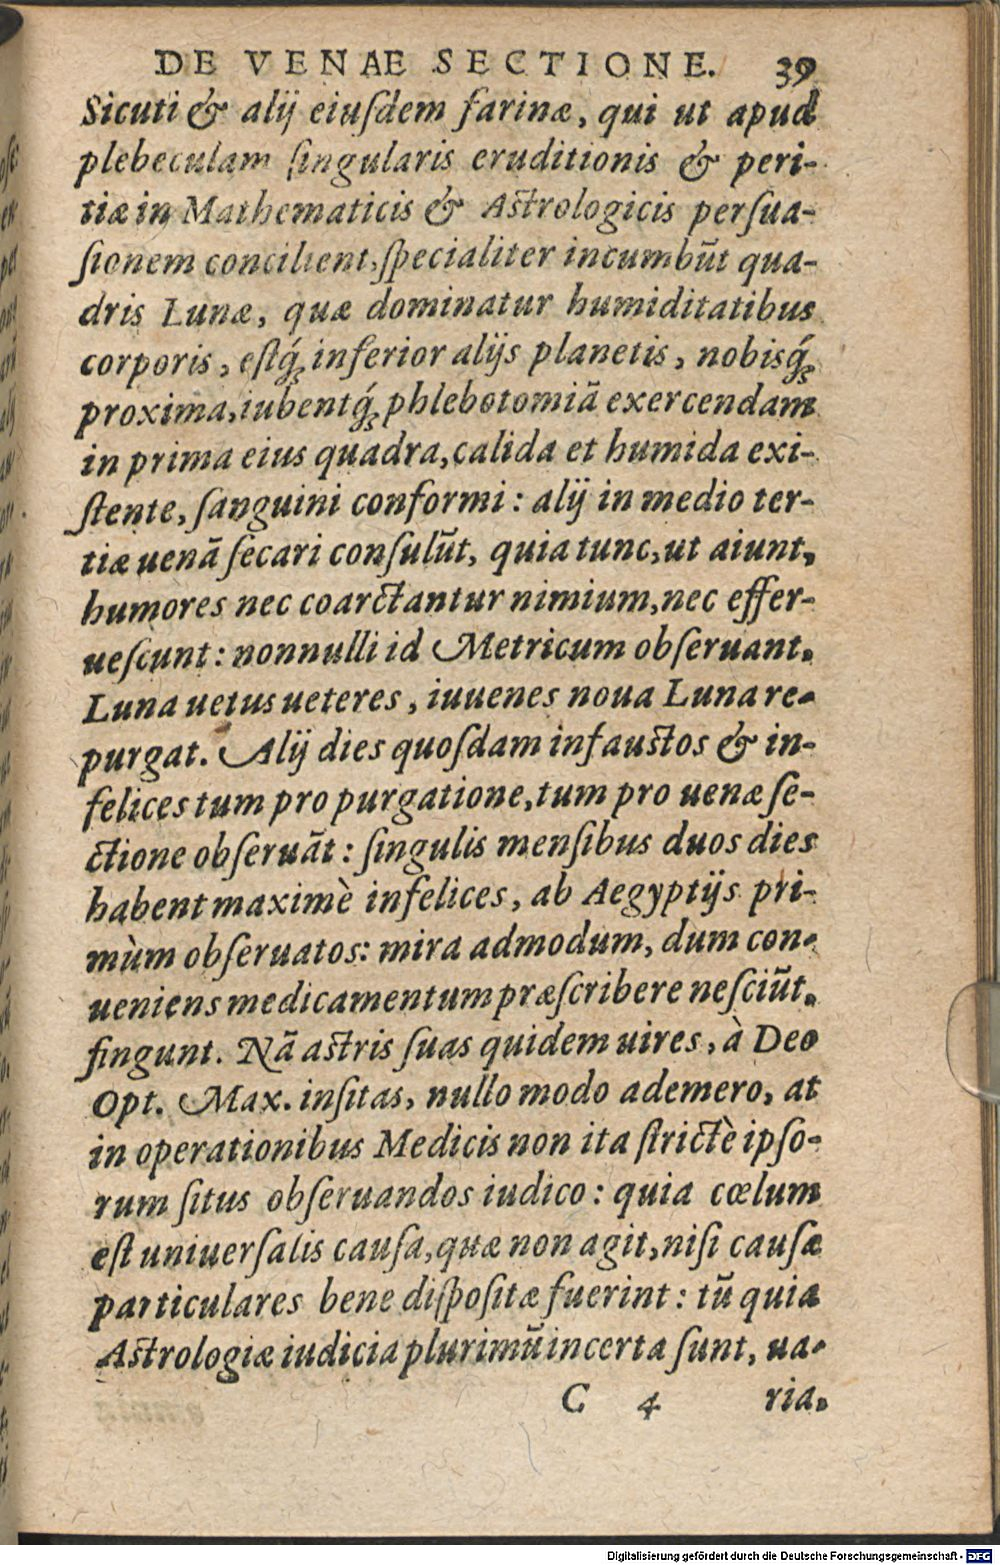 DE VENAE SECTIONE. 39
Sicuti & alij eiuſdem farinæ, qui ut apud
plebeculam ſingularis eruditionis & peri-
tiæ in Mathematicis & Aſtrologicis perſua-
ſionem concilient, ſpecialiter incumbũt qua-
dris Lunæ, quæ dominatur humiditatibus
corporis, eſtq́; inferior alijs planetis, nobisq́;
proxima, iubentq́; phlebotomiã exercendam
in prima eius quadra, calida et humida exi-
ſtente, ſanguini conformi: alij in medio ter-
tiæ uenã ſecari conſulũt, quia tunc, ut aiunt,
humores nec coarctantur nimium, nec effer-
ueſcunt: nonnulli id Metricum obſeruant.
Luna uetus ueteres, iuuenes noua Luna re-
purgat. Alij dies quoſdam infauſtos & in-
felices tum pro purgatione, tum pro uenæ ſe-
ctione obſeruãt: ſingulis menſibus duos dies
habent maximè infelices, ab Aegyptijs pri-
mùm obſeruatos: mira admodum, dum con-
ueniens medicamentum præſcribere neſciũt,
fingunt. Nã aſtris ſuas quidem uires, à Deo
Opt. Max. inſitas, nullo modo ademero, at
in operationibus Medicis non ita ſtrictè ipſo-
rum ſitus obſeruandos iudico: quia cœlum
eſt uniuerſalis cauſa, quæ non agit, niſi cauſæ
particulares bene diſpoſitæ fuerint: tũ quia
Aſtrologiæ iudicia plurimũ incerta ſunt, ua-
C 4 ria.
Digitalisierung gefördert durch die Deutsche Forschungsgemeinschaft - DFG